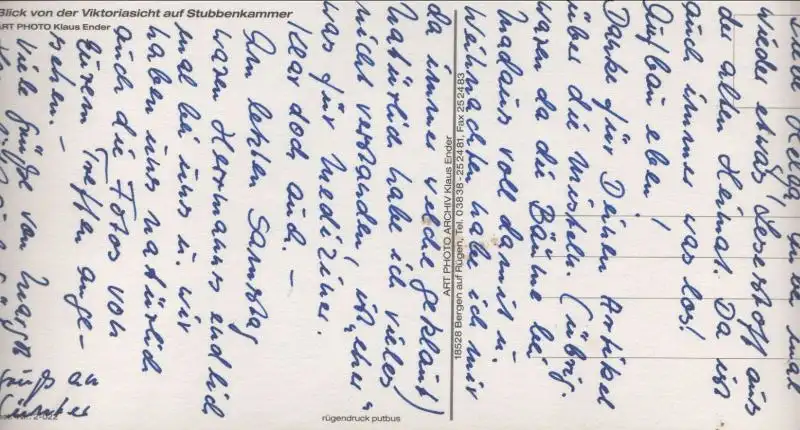 Blick von der Viktoriasicht auf Stubbenkammer
ART PHOTO Klaus Ender
mal
wieder etwas Lesestoff aus
der alten Heimat. Da ist
auch immer was los!
Aufbau eben!
Danke für Deinen Artikel
über die Misteln. (übrig.
waren da die Bäume bei
Madaus voll damit u.
Weihnachten habe ich mir
da immer welche geklaut)
Natürlich habe ich vieles
nicht verstanden, ist eher
was für Mediziner.
Klar doch auch. –
Am letzten Samstag
waren Herrmanns endlich
mal bei uns u. wir
haben uns natürlich
auch die Fotos von
Eurem Treffen ange-
sehen. –
Viele Grüße von
Gruß an
Günter
ART PHOTO ARCHIV Klaus Ender
18528 Bergen auf Rügen, Tel. 03838-252481, Fax 252483
rügendruck putbus